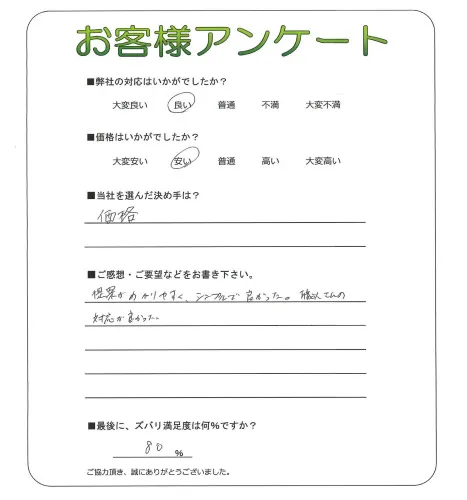 お客様アンケート
■弊社の対応はいかがでしたか？
大変良い 良い 普通 不満 大変不満
■価格はいかがでしたか？
大変安い 安い 普通 高い 大変高い
■当社を選んだ決め手は？
価格
■ご感想・ご要望などをお書き下さい。
わかりやすく、シンプルで良かった。
対応が良かった。
■最後に、ズバリ満足度は何％ですか？
80 ％
ご協力頂き、誠にありがとうございました。